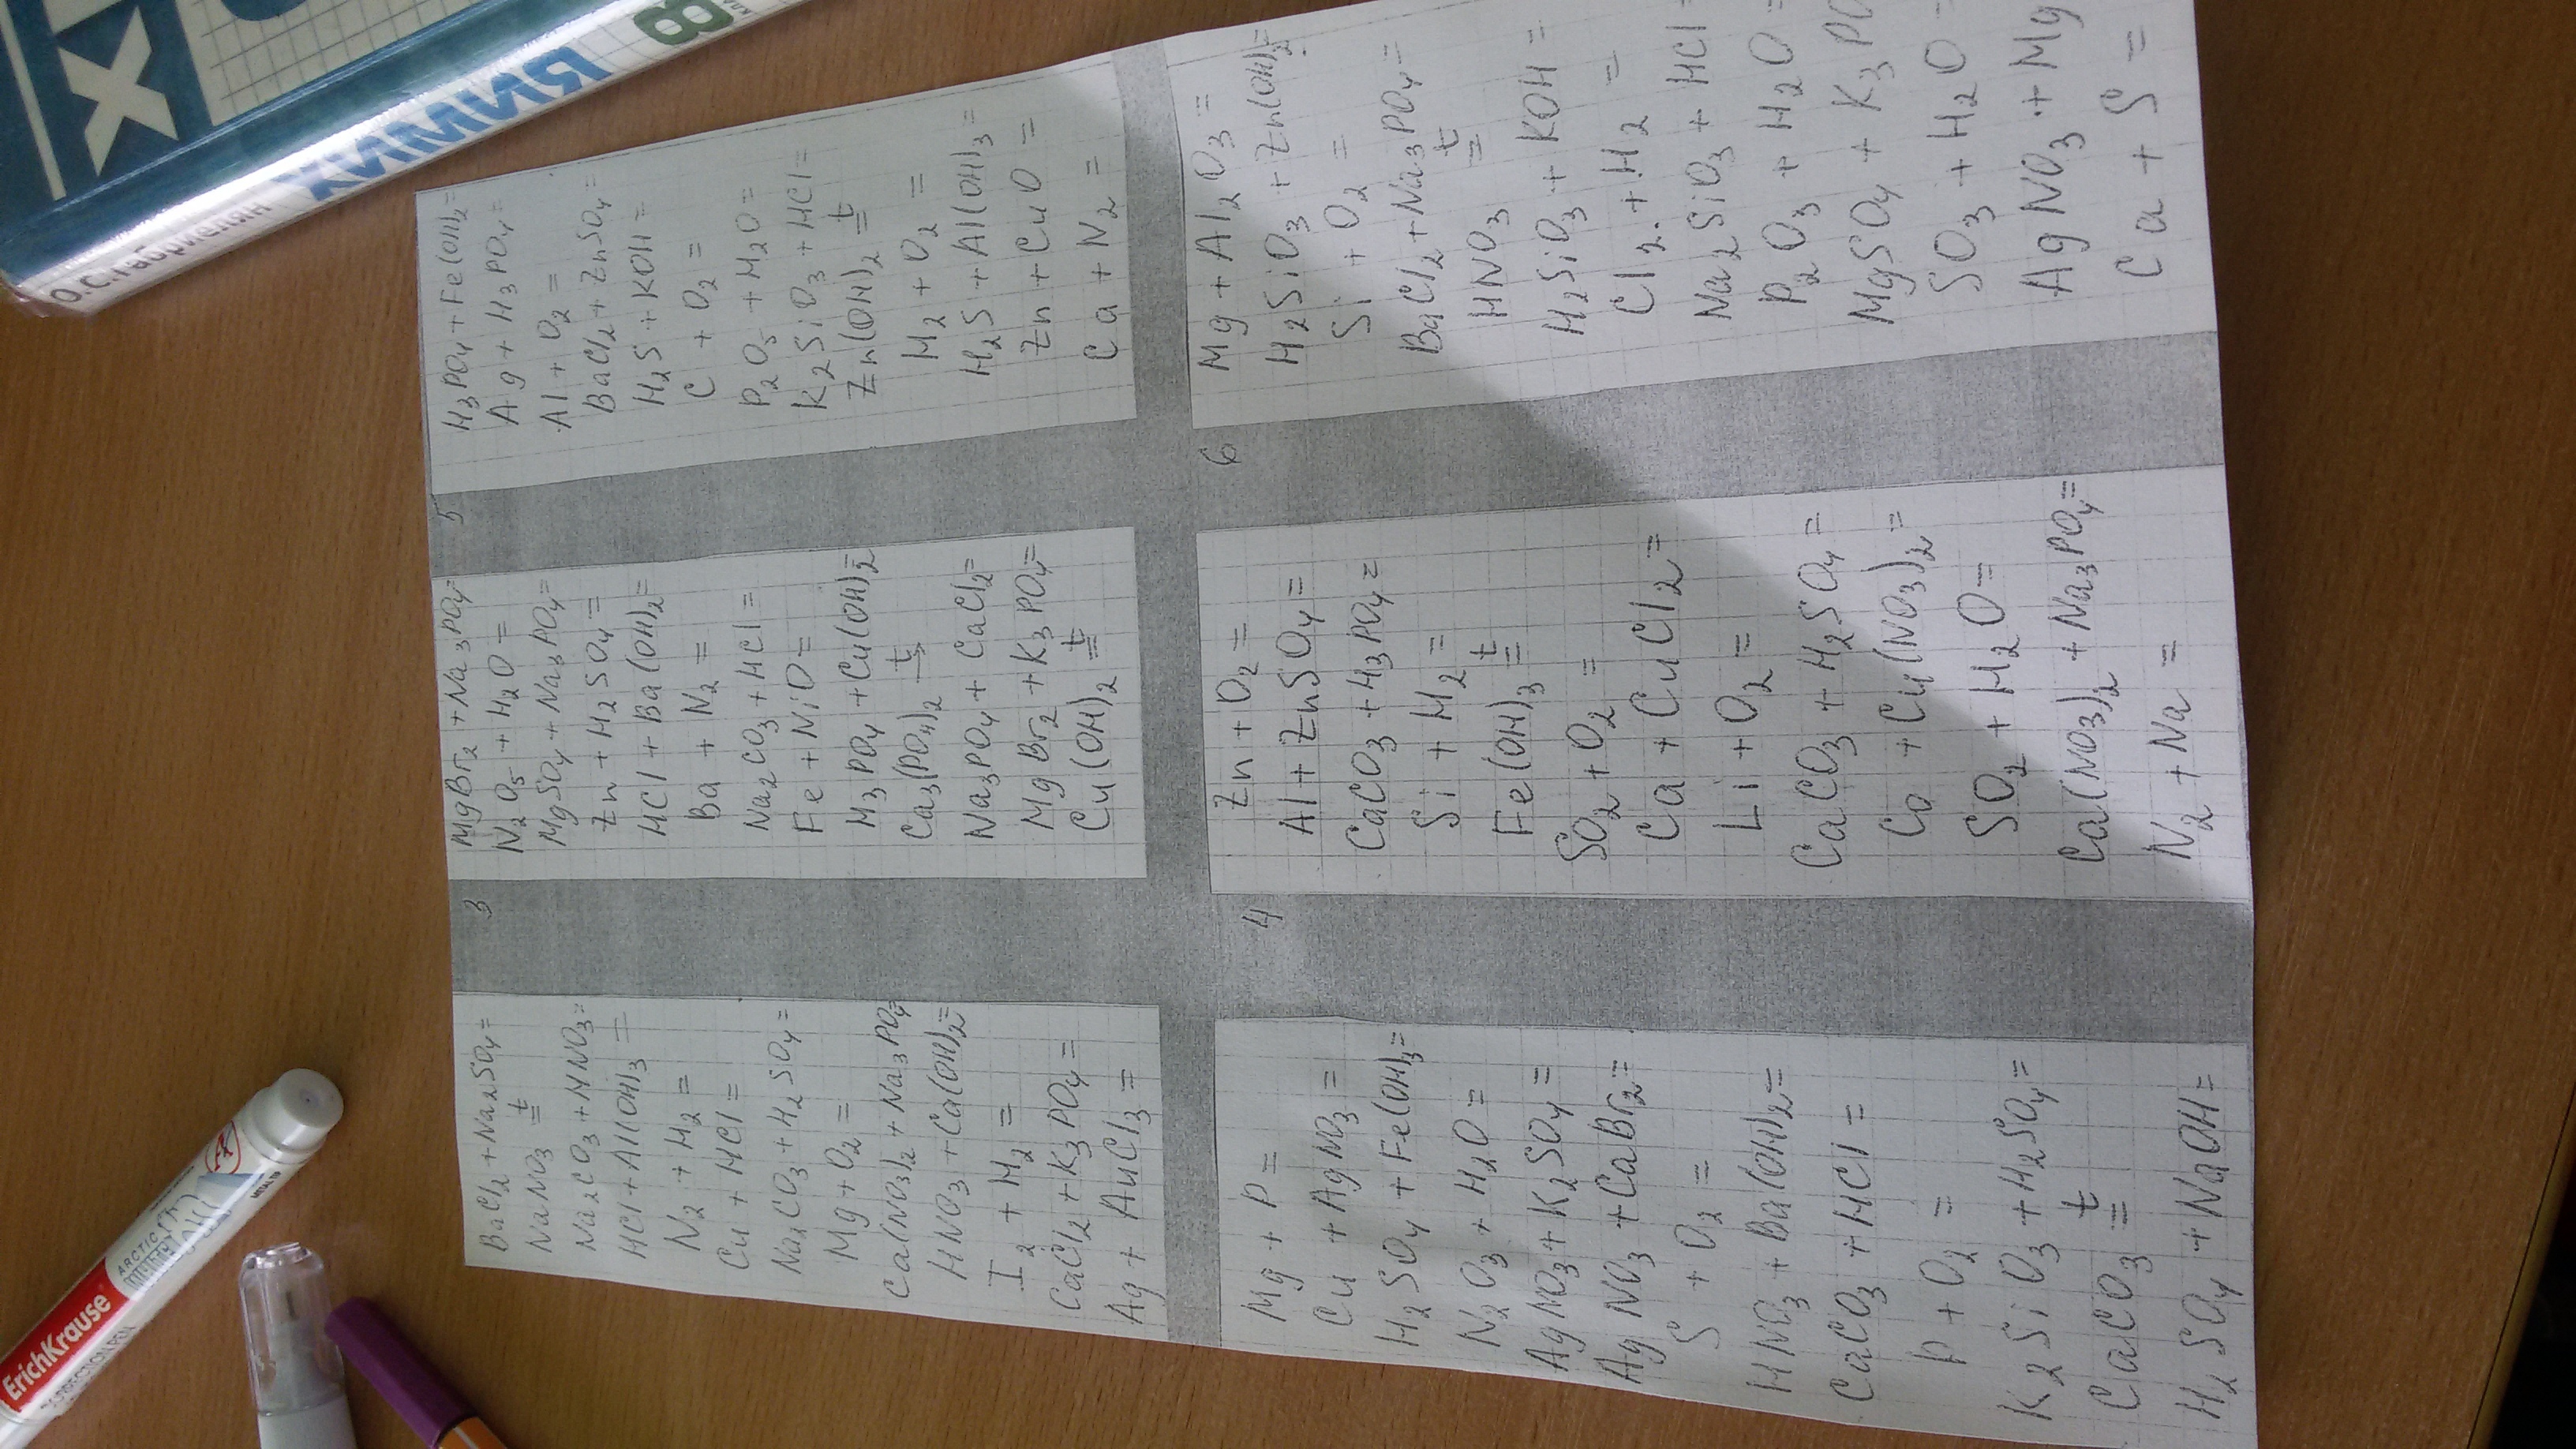 BaCl2 + Na2SO4=
NaNO3 t=
Na2CO3 + HNO3=
HCl + Al(OH)3 =
N2 + H2 =
Cu + HCl =
Na2CO3 + H2SO4 =
Mg + O2 =
Ca(NO3)2 + Na3PO4=
HNO3 + Ca(OH)2=
I2 + H2 =
CaCl2 + K3PO4=
Ag + AuCl3 =
3
MgBr2 + Na3PO4=
N2O5 + H2O =
MgSO4 + Na3PO4=
Zn + H2SO4 =
HCl + Ba(OH)2=
Ba + N2 =
Na2CO3 + HCl =
Fe + NiO =
H3PO4 + Cu(OH)2=
Ca3(PO4)2 t
Na3PO4 + CaCl2=
MgBr2 + K3PO4=
Cu(OH)2 t=
5
H3PO4 + Fe(OH)2=
Ag + H3PO4=
Al + O2 =
BaCl2 + ZnSO4=
H2S + KOH =
C + O2 =
P2O5 + H2O=
K2SiO3 + HCl=
Zn(OH)2 t=
H2 + O2 =
H2S + Al(OH)3=
Zn + CuO =
Ca + N2 =
Mg + P =
Cu + AgNO3 =
H2SO4 + Fe(OH)3=
N2O3 + H2O =
AgNO3 + K2SO4 =
AgNO3 + CaBr2=
S + O2 =
HNO3 + Ba(OH)2=
CaCO3 + HCl =
P + O2 =
K2SiO3 + H2SO4=
CaCO3 t=
H2SO4 + NaOH=
4
Zn + O2 =
Al + ZnSO4 =
CaCO3 + H3PO4=
Si + H2 =
Fe(OH)3 t=
SO2 + O2 =
Ca + CuCl2 =
Li + O2 =
CaCO3 + H2SO4 =
Co + Cu(NO3)2=
SO2 + H2O=
Ca(NO3)2 + Na3PO4=
N2 + Na =
6
Mg + Al2O3 =
H2SiO3 + Zn(OH)2=
Si + O2 =
BaCl2 + Na3PO4=
HNO3 t=
H2SiO3 + KOH =
Cl2 + H2 =
Na2SiO3 + HCl =
P2O3 + H2O =
MgSO4 + K3PO
SO3 + H2O =
AgNO3 + Mg
Ca + S =
О.С.Габриелян
ХИМИЯ
8
ErichKrause
ARCTIC
CORRECTION PEN
METAL TIP